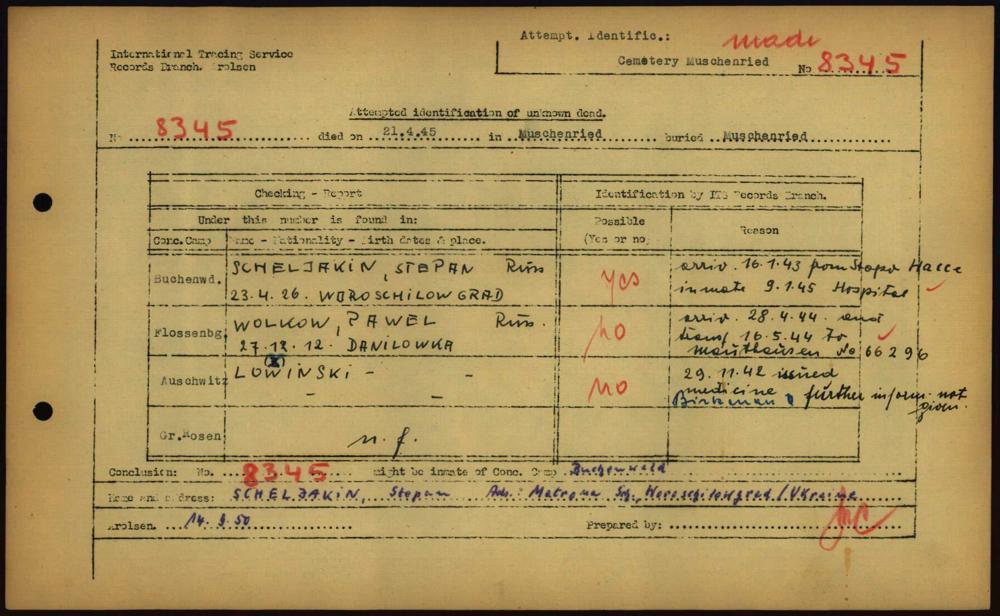 International Tracing Service
Records Branch. Arolsen
Attempt. Identific.: made
Cemetery Muschenried
No 8345
Attempted identification of unknown dead.
No 8345 died on 21.4.45 in Muschenried buried Muschenried
Checking - Report
Identification by ITS Records Branch.
Under this number is found in:
Possible
(Yes or no)
Reason
Conc.Camp
Name - Nationality - Birth dates & place.
Buchenwd.
SCHELJAKIN, STEPAN Russ
23.4.26. WOROSCHILOWGRAD
yes
arriv. 16.1.43 from Stapo Halle
inmate 9.1.45 Hospital
Flossenbg.
WOLKOW, PAWEL Rus.
27.12.12. DANILOWKA
no
arriv. 28.4.44. and
transf 16.5.44 to
Mauthausen No 66296
Auschwitz
LOWINSKI - -
- -
no
29.11.42 issued
medicine
Birkenau further inform. not
given.
Gr.Rosen
n. f.
Conclusion: No. 8345 might be inmate of Conc. Camp Buchenwald
Name and address: SCHELJAKIN, Stepan Adr.: Matrona Sch., Woroschilowgrad / Ukraine
Arolsen. 14.9.50
Prepared by: